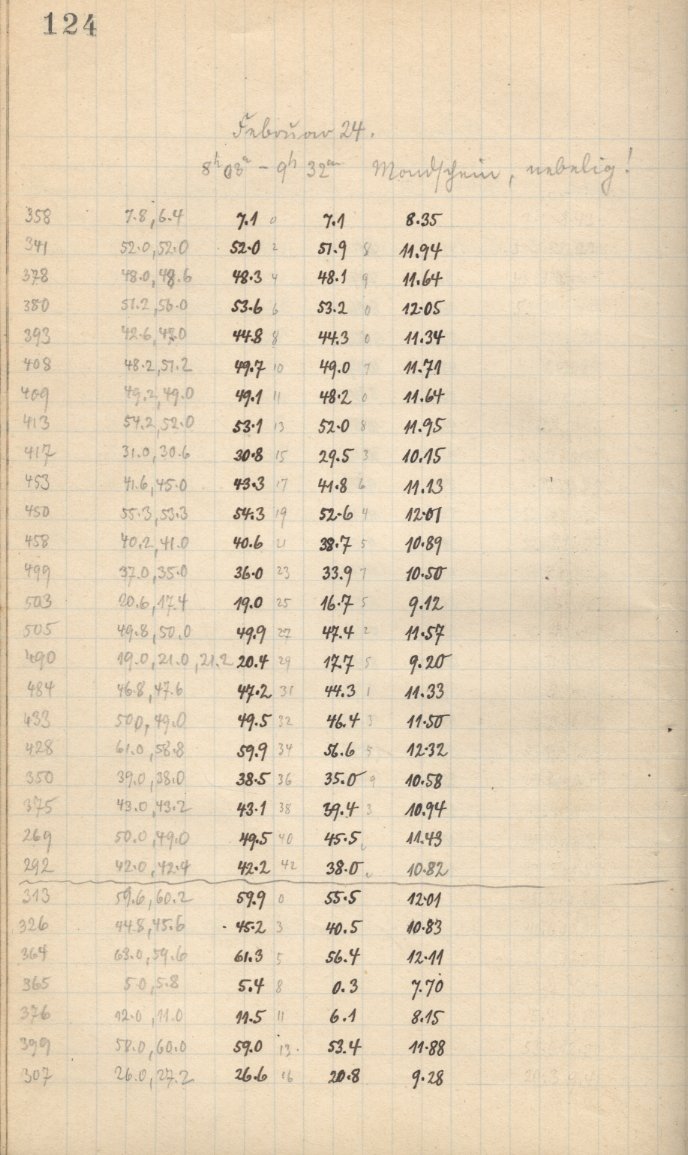 124
Februar 24.
8h 03m - 9h 32m Mondschein, nebelig!
358 7.8, 6.4 7.1 0 7.1 8.35
341 52.0, 52.0 52.0 2 51.9 8 11.94
378 48.0, 48.6 48.3 4 48.1 9 11.64
380 51.2, 56.0 53.6 6 53.2 0 12.05
393 42.6, 47.0 44.8 8 44.3 0 11.34
408 48.2, 51.2 49.7 10 49.0 7 11.71
409 49.2, 49.0 49.1 11 48.2 0 11.64
413 54.2, 52.0 53.1 13 52.0 8 11.95
417 31.0, 30.6 30.8 15 29.5 3 10.15
453 41.6, 45.0 43.3 17 41.8 6 11.13
450 55.3, 53.3 54.3 19 52.6 4 12.01
458 40.2, 41.0 40.6 21 38.7 5 10.89
499 37.0, 35.0 36.0 23 33.9 7 10.50
503 20.6, 17.4 19.0 25 16.7 5 9.12
505 49.8, 50.0 49.9 27 47.4 2 11.57
490 19.0, 21.0, 21.2 20.4 29 17.7 5 9.20
484 46.8, 47.6 47.2 31 44.3 1 11.33
433 50.0, 49.0 49.5 32 46.4 3 11.50
428 61.0, 58.8 59.9 34 56.6 5 12.32
350 39.0, 38.0 38.5 36 35.0 9 10.58
375 43.0, 43.2 43.1 38 39.4 3 10.94
269 50.0, 49.0 49.5 40 45.5 11.43
292 42.0, 42.4 42.2 42 38.0 10.82
313 59.6, 60.2 59.9 0 55.5 12.01
326 44.8, 45.6 45.2 3 40.5 10.83
364 63.0, 59.6 61.3 5 56.4 12.11
365 5.0, 5.8 5.4 8 0.3 7.70
376 12.0, 11.0 11.5 11 6.1 8.15
399 58.0, 60.0 59.0 13 53.4 11.88
307 26.0, 27.2 26.6 16 20.8 9.28